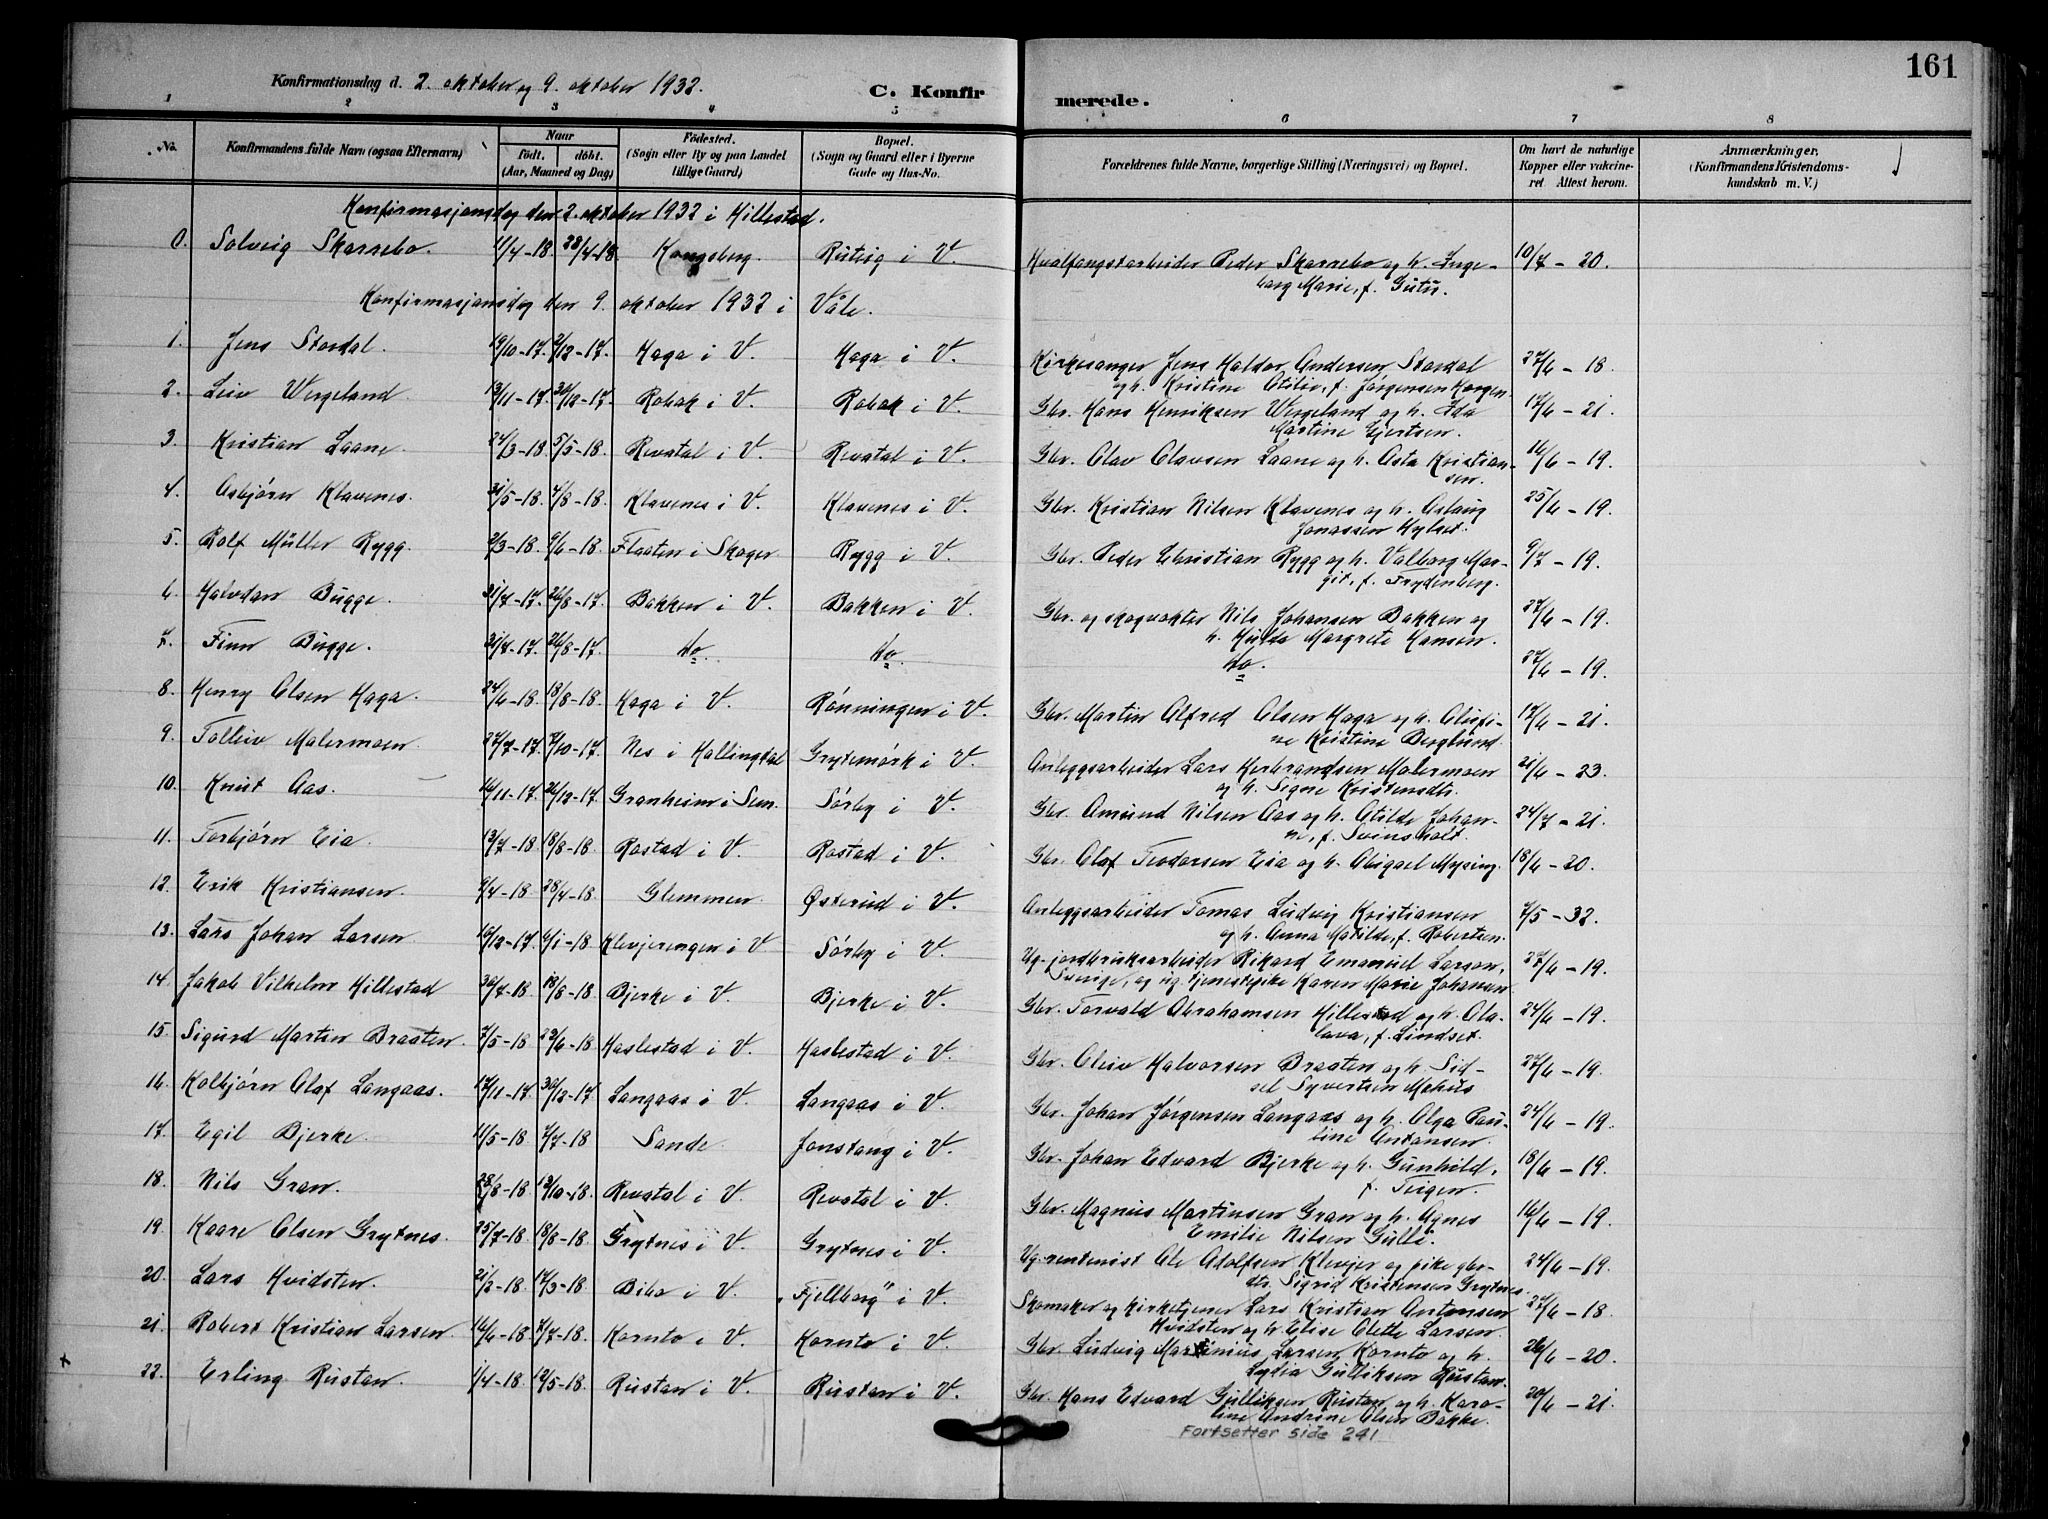 161
Konfirmationsdag d. 2. oktober og 9. oktober 1932. C. Konfirmerede.
1 2 3 4 5 6 7 8
No. Konfirmandens fulde Navn (ogsaa Efternavn) Naar födt. döbt. (Aar, Maaned og Dag) Födested. (Sogn eller By og paa Landet tillige Gaard) Bopæl. (Sogn og Gaard eller i Byerne Gade og Hus-No. Forældrenes fulde Navne, borgerlige Stilling (Næringsvei) og Bopæl. Om havt de naturlige Kopper eller vakcineret Attest herom. Anmærkninger. (Konfirmandens Kristendomskundskab m. V.)
Konfirmasjonsdag den 2. oktober 1932 i Hillestad.
0. Solveig Skarrebo. 11/4-18. 28/4-18 Kongsberg. i V. Hvalfangstarbeider Peder Skarrebo og h. Inge- 10/7 - 20.
borg Marie, f. Gutu.
Konfirmasjonsdag den 9. oktober 1932 i Våle.
1. Jens Stordal. 19/10-17. 2/12-17. Haga i V. Haga i V. Kirkesanger Jens Haldor Andersen Stordal 27/6 - 18.
og h. Kristine Otilie, f. Jørgensen Horgen.
2. Leiv Wergeland. 13/11-17. 30/12-17. Robak i V. Robak i V. Gbr. Hans Henriksen Wergeland og h. Ida 17/6 - 21.
Martine Gjertsen.
3. Kristian Laane. 24/3-18. 5/5-18. Revatal i V. Revatal i V. Gbr. Olav Olavsen Laane og h. Asta Kristian- 16/6 - 19.
sen.
4. Asbjørn Klavenes. 31/5-18. 4/8-18. Klavenes i V. Klavenes i V. Gbr. Kristian Nilsen Klavenes og h. Aslaug 25/6 - 19.
Jonassen Hylset.
5. Rolf Müller Rygg. 2/3-18. 9/6-18. Flaaten i Skoger Rygg i V. Gbr. Peder Christian Rygg og h. Valborg Mar- 9/7 - 19.
git, f. Frydenberg.
6. Halvdan Bugge. 31/7-17. 26/8-17. Bakken i V. Bakken i V. Gbr. og skogvokter Nils Johansen Bakken og 27/6 - 19.
h. Hulda Margrete Hansen.
7. Finn Bugge. 31/7-17. 26/8-17. do. do. do. 27/6 - 19.
8. Henry Olsen Haga. 24/6-18. 18/8-18. Haga i V. Rønningen i V. Gbr. Martin Alfred Olsen Haga og h. Olufi- 17/6 - 21.
ne Kristine Berglund.
9. Tolleiv Malermoen. 27/7-17. 7/10-17. Nes i Hallingdal Grytemørk i V. Anleggsarbeider Lars Herbrandsen Malermoen 21/6 - 23.
og h. Signe Kristensdtr.
10. Knut Aas. 16/11-17. 26/12-17. Granheim i Sem. Sørby i V. Gbr. Amund Nilsen Aas og h. Otilde Johan- 24/7 - 21.
ne, f. Svinsholt.
11. Torbjørn Eia. 13/7-18. 18/8-18. Rostad i V. Rostad i V. Gbr. Olaf Teodorsen Eia og h. Abigael Mysing. 18/6 - 20.
12. Erik Kristiansen. 9/4-18. 28/4-18. Glemmen. Østerud i V. Anleggsarbeider Tomas Ludvig Kristiansen 7/5 - 32.
og h. Anna Matilde, f. Robertsen.
13. Lars Johan Larsen. 16/12-17. 6/1-18. Klevjerengen i V Sørby i V. Ug. jordbruksarbeider Rikard Emanuel Larson, 27/6 - 19.
Sverige, og ug. tjenestepike Karen Marie Johansen
14. Jakob Vilhelm Hillestad 30/4-18. 18/8-18. Bjerke i V. Bjerke i V. Gbr. Torvald Abrahamsen Hillestad og h. Ola- 24/6 - 19.
lava, f. Lindset.
15. Sigurd Martin Braaten. 7/5-18. 23/6-18. Haslestad i V. Haslestad i V. Gbr. Oleiv Halvorsen Braaten og h. Sid- 27/6 - 19.
sel Syvertsen Mehus
16. Kolbjørn Olaf Langaas. 17/11-17. 30/12-17. Langaas i V. Langaas i V. Gbr. Johan Jørgensen Langaas og h. Olga Pau- 24/6 - 19.
line Antonsen.
17. Egil Bjerke. 11/5-18. 7/7-18. Sande. Jonstang i V. Gbr. Johan Edvard Bjerke og h. Gunhild, 18/6 - 19.
f. Teigen.
18. Nils Gran. 28/8-18. 13/10-18. Revatal i V. Revatal i V. Gbr. Magnus Martinsen Gran og h. Agnes 16/6 - 19.
Emilie Nilsen Gulli.
19. Kaare Olsen Grytnes. 25/7-18. 18/8-18. Grytnes i V. Grytnes i V. Ug. rentenist Ole Adolfsen Klevjer og pike gbr- 24/6 - 19.
dtr. Sigrid Kristensen Grytnes
20. Lars Hvidsten. 21/2-18. 17/3-18. Bibo i V. "Fjellborg" i V. Skomaker og kirketjener Lars Kristian Antonsen 27/6 - 18.
Hvidsten og h. Elise Olette Larsen.
21. Robert Kristian Larsen. 16/6-18. 7/7-18. Kornto i V. Kornto i V. Gbr. Ludvig Martinius Larsen Kornto og h. 26/6 - 20.
Lydia Gulliksen Rustan.
22. Erling Rustan. 1/4-18. 12/5-18. Rustan i V. Rustan i V. Gbr. Hans Edvard Gulliksen Rustan og h. Karo- 20/6 - 21.
line Andrine Olsen Bakke.
Fortsetter side 241